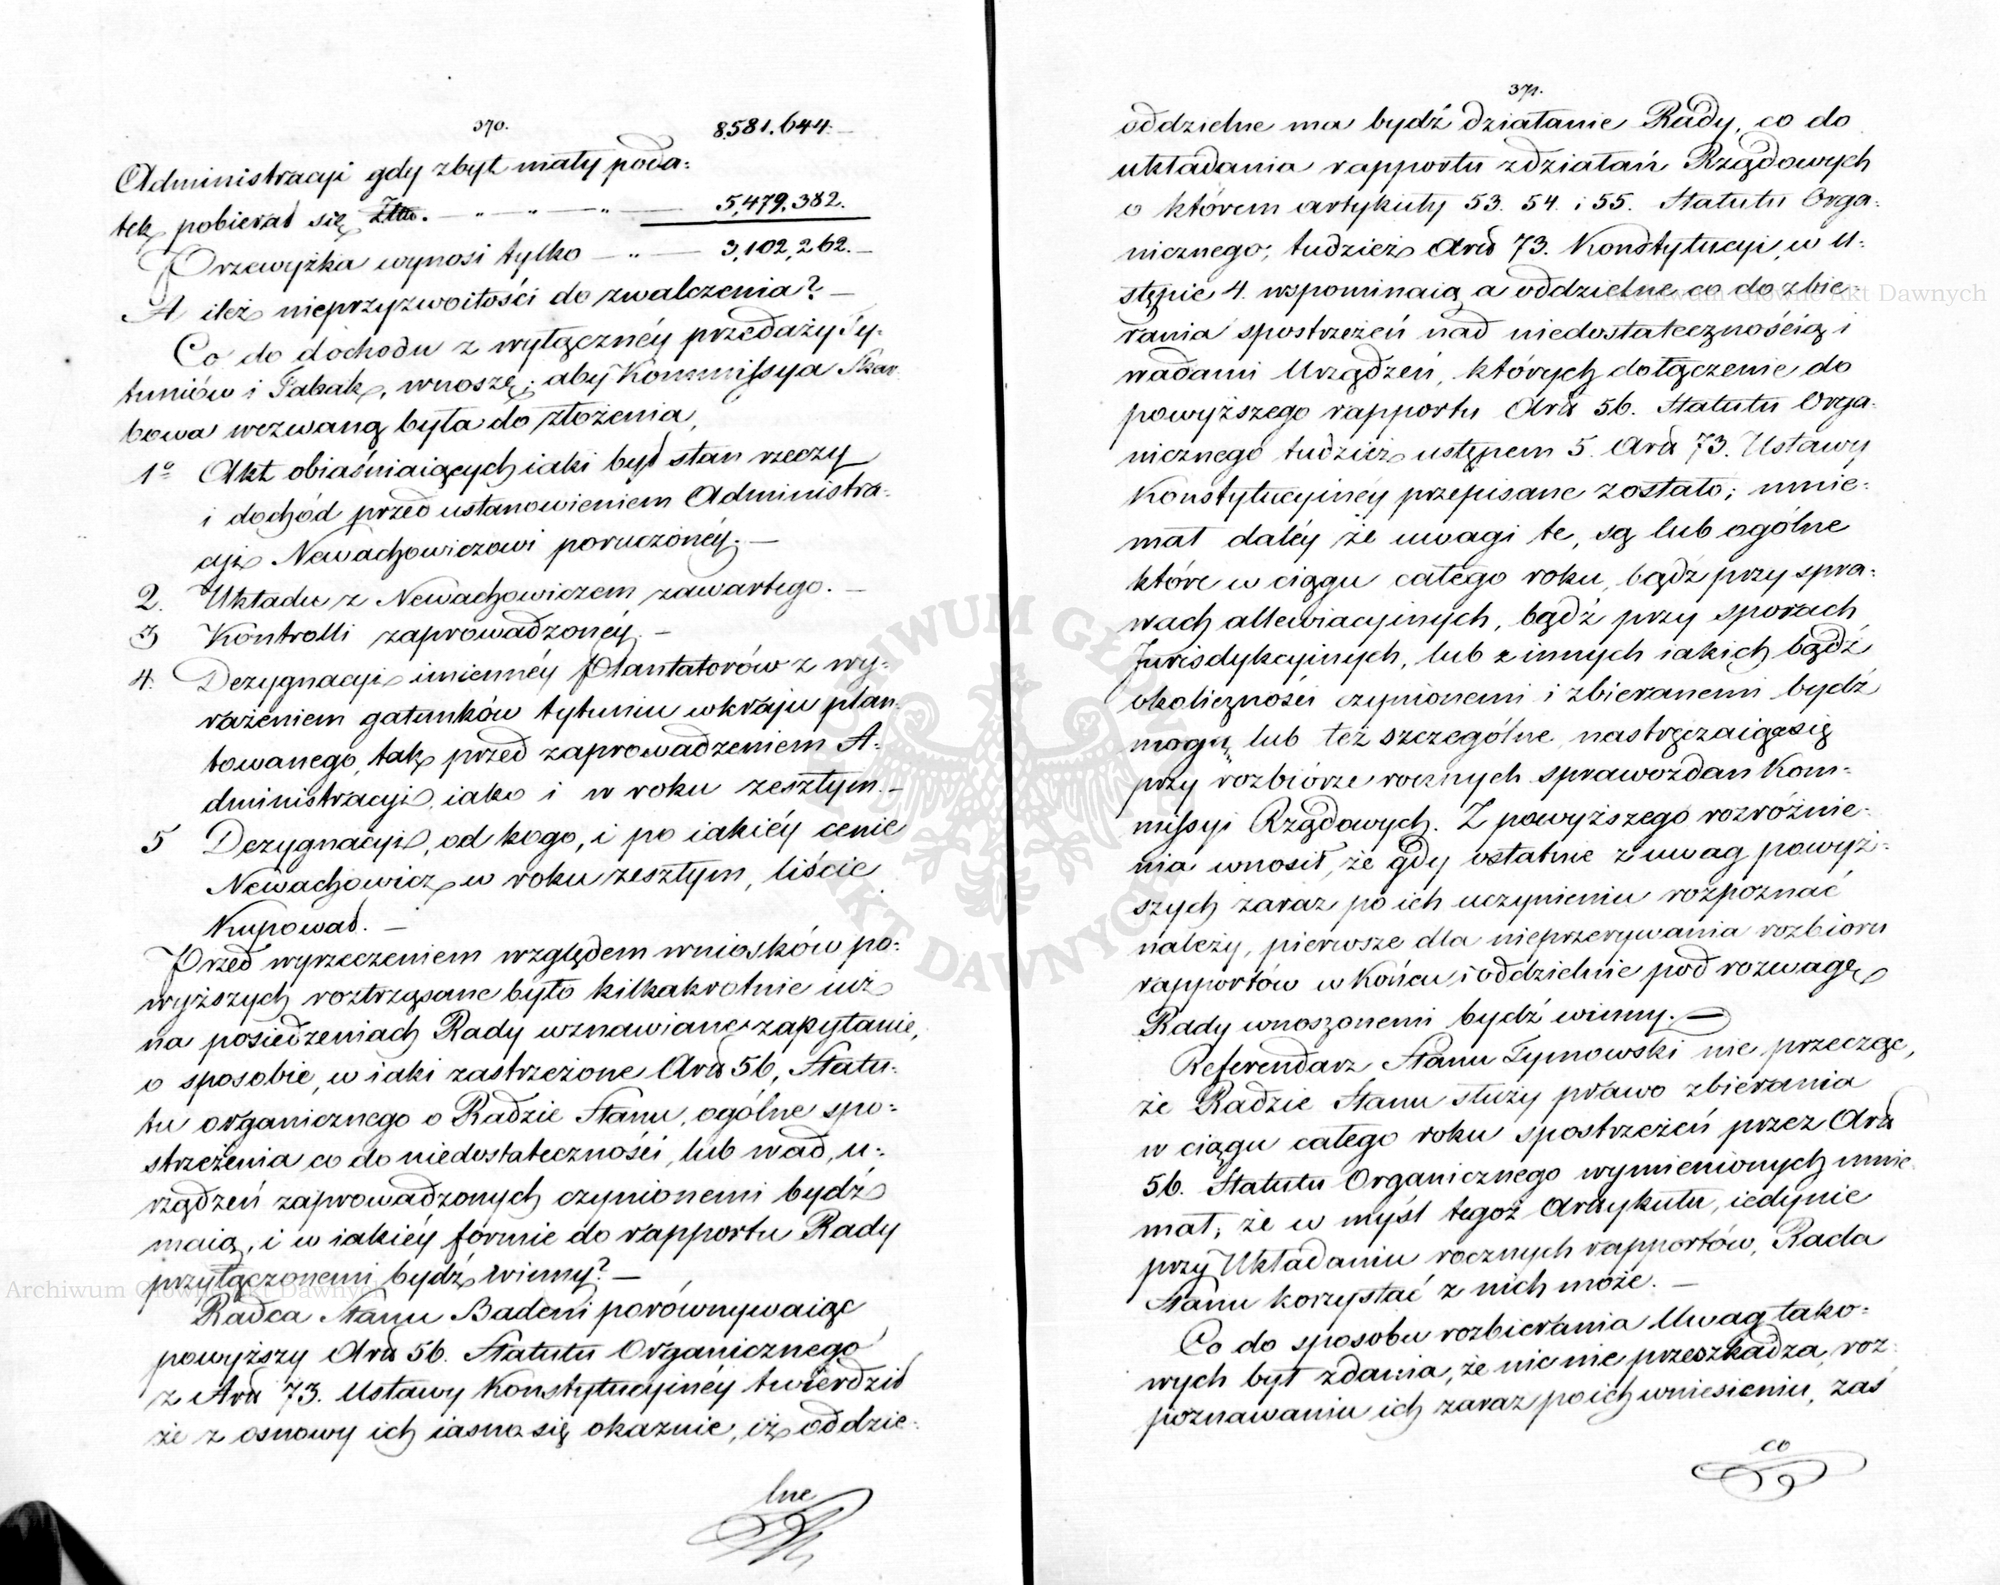 370.
8.581.644.—
Administracyi gdy zbyt mały poda=
tek pobierał się Złł. — „ — „ — „ — 5,479,382.
Przewyżka wynosi tylko — „ — 3,102,262.—
A ileż nieprzyzwoitości do zwalczenia? —
Co do dochodu z wyłącznéy przedaży Ty=
tuniów i Tabak, wnoszę; aby Kommissya Skar
bowa wezwaną była do złożenia,
1º Akt obiaśniaiących iaki był stan rzeczy
i dochód przed ustanowieniem Administra=
cyi Newachowiczowi poruczonéy. —
2. Układu z Newachowiczem zawartego. —
3 Kontrolli zaprowadzonéy. —
4. Dezygnacyi imiennéy Plantatorów z wy=
rażeniem gatunków tytuniu w kraju plan=
towanego, tak przed zaprowadzeniem A=
dministracyi, iako i w roku zeszłym. —
5 Dezygnacyi, od kogo, i po iakiéy cenie
Newachowicz w roku zeszłym, liście
Kupował. —
Przed wyrzeczeniem względem wniosków po=
wyższych roztrząsane było kilkakrotnie iuż
na posiedzeniach Rady wznawiane zapytanie,
o sposobie, w iaki zastrzeżone Art 56, Statu=
tu organicznego o Radzie Stanu, ogólne spo=
strzeżenia co do niedostateczności, lub wad, u=
rządzeń zaprowadzonych czynionemi bydź
maią, i w iakiéy formie do rapportu Rady
przyłączonemi bydź winny? —
Radca Stanu Badeni porównywaiąc
powyższy Art 56. Statutu Organicznego
z Art 73. Ustawy Konstytucyinéy twierdził
że z osnowy ich iasno się okazuie, iż oddzie=
lne
371.
oddzielne ma bydź działanie Rady, co do
układania rapportu zdziałań Rządowych
o którem artykuły 53. 54. i 55. Statutu Orga=
nicznego; tudzież Art 73. Konstytucyi, w U=
stępie 4. wspominaią a oddzielne co do zbie=
rania spostrzeżeń nad niedostatecznością i
wadami Urządzeń, których dołączenie do
powyższego rapportu Art 56. Statutu Orga=
nicznego tudzież ustępem 5. Art 73. Ustawy
Konstytucyinéy przepisane zostało; mnie=
mał daléy że uwagi te, są lub ogólne
które w ciągu całego roku, bądź przy spra=
wach allewiacyinych, bądź przy sporach
Jurisdykcyinych, lub z innych iakich bądź
okoliczności czynionemi i zbieranemi bydź
mogą, lub też szczególne nastręczaiące się
przy rozbiórze rocznych sprawozdań Kom=
missyi Rządowych. Z powyższego rozróżnie=
nia wnosił, że gdy ostatnie z uwag powyż=
szych zaraz po ich uczynieniu rozpoznać
należy, pierwsze dla nieprzerywania rozbioru
rapportów w Końcu i oddzielnie pod rozwagę
Rady wnoszonemi bydź winny. —
Referendarz Stanu Tymowski nie przecząc,
że Radzie Stanu służy prawo zbierania
w ciągu całego roku spostrzeżeń przez Art
56. Statutu Organicznego wymienionych mnie=
mał, że w myśl tegoż Artykułu, iedynie
przy Układaniu rocznych rapportów, Rada
Stanu korzystać z nich może. —
Co do sposobu rozbierania Uwag tako=
wych był zdania, że nic nie przeszkadza, roz=
poznawaniu ich zaraz po ich wniesieniu, zaś
co
Archiwum Główne Akt Dawnych
Archiwum Główne Akt Dawnych
ARCHIWUM GŁÓWNE AKT DAWNYCH